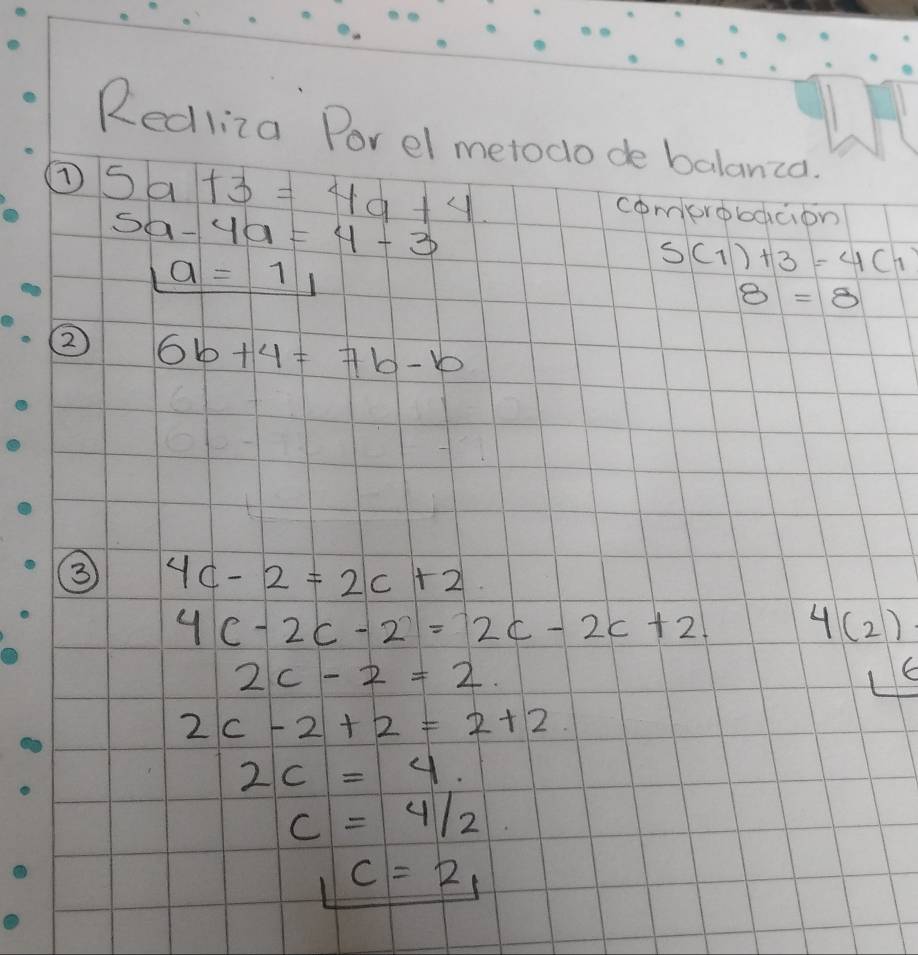 Realiza Por el metodo de balanza.
① 5a + 3 = 4a + 4.
5a - 4a = 4 - 3
a = 1
comprobación
5(1) + 3 = 4(1
8 = 8
② 6b + 4 = 7b - b
③ 4c - 2 = 2c + 2.
4c - 2c - 2 = 2c - 2c + 2.
2c - 2 = 2.
2c - 2 + 2 = 2 + 2.
2c = 4.
c = 4/2.
c = 2
4(2) -
6